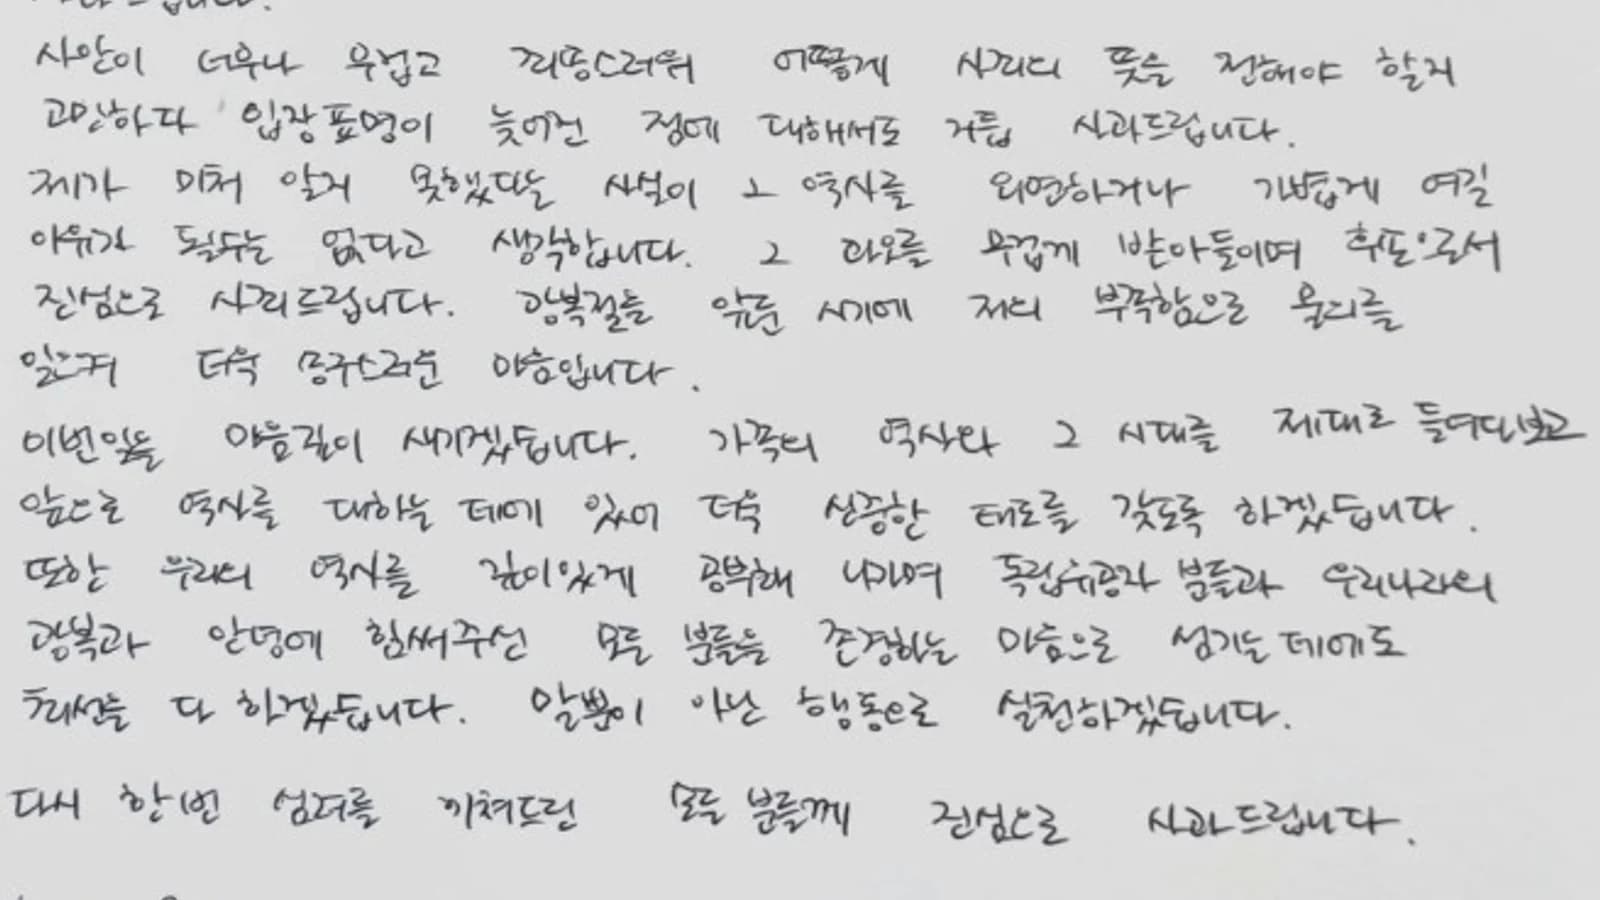 사안이 너무나 무겁고 죄송스러워 어떻게 사죄의 뜻을 전해야 할지
고민하다 입장표명이 늦어진 점에 대해서도 거듭 사과드립니다.
제가 미처 알지 못했다는 사실이 그 역사를 외면하거나 가볍게 여길
이유가 될수는 없다고 생각합니다. 그 과오를 무겁게 받아들이며 후손으로서
진심으로 사죄드립니다. 광복절을 앞둔 시기에 저의 부족함으로 물의를
일으켜 더욱 송구스러운 마음입니다.
이번일을 마음깊이 새기겠습니다. 가족의 역사와 그 시대를 제대로 들여다보고
앞으로 역사를 대하는 데에 있어 더욱 신중한 태도를 갖도록 하겠습니다.
또한 우리의 역사를 깊이있게 공부해 나가며 독립유공자 분들과 우리나라의
광복과 안녕에 힘써주신 모든 분들을 존경하는 마음으로 섬기는 데에도
최선을 다 하겠습니다. 말뿐이 아닌 행동으로 실천하겠습니다.
다시 한번 심려를 끼쳐드린 모든 분들께 진심으로 사과드립니다.